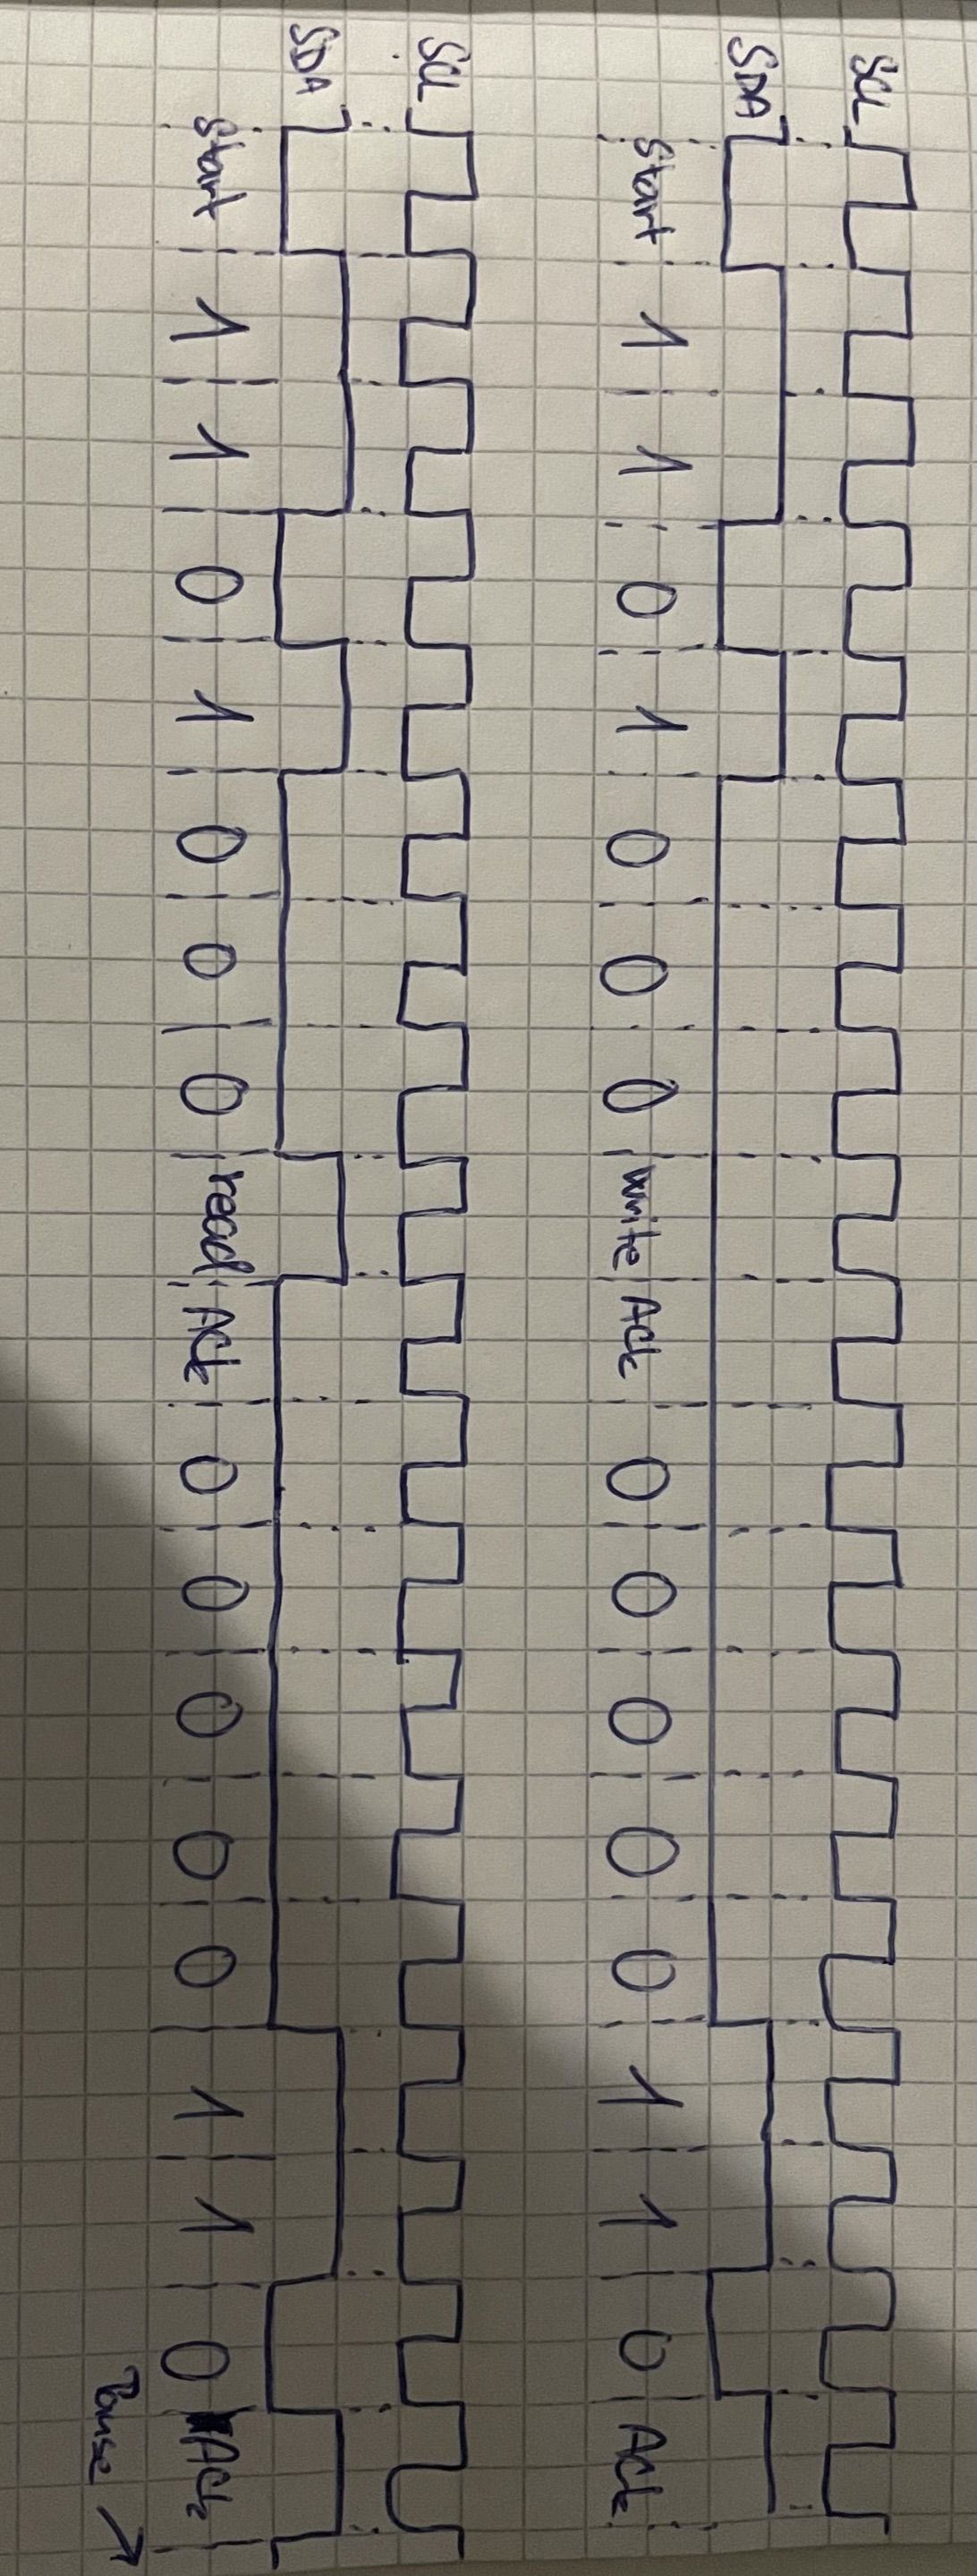 SCL
SDA
Start 1 1 0 1 0 0 0 write Ack 0 0 0 0 0 1 1 0 Ack
SCL
SDA
Start 1 1 0 1 0 0 0 read Ack 0 0 0 0 0 1 1 0 Ack
Pause